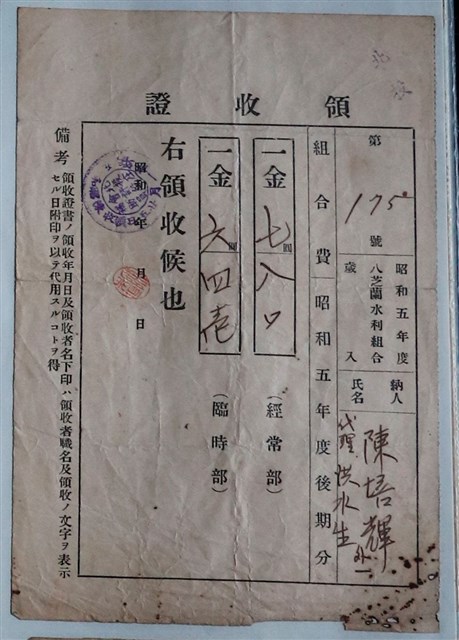 領收證
第 175 號
昭和五年度
八芝蘭水利組合
歲入
納人
氏名
陳培輝 外一
代理 洪水生
組合費昭和五年度後期分
一金 七圓八〇
(經常部)
一金 六圓四壱
(臨時部)
右領收候也
昭和 年 月 日
備考 領收證書ノ領收年月日及領收者名下印ハ領收者職名及領收ノ文字ヲ表示
セル日附印ヲ以テ代用スルコトヲ得